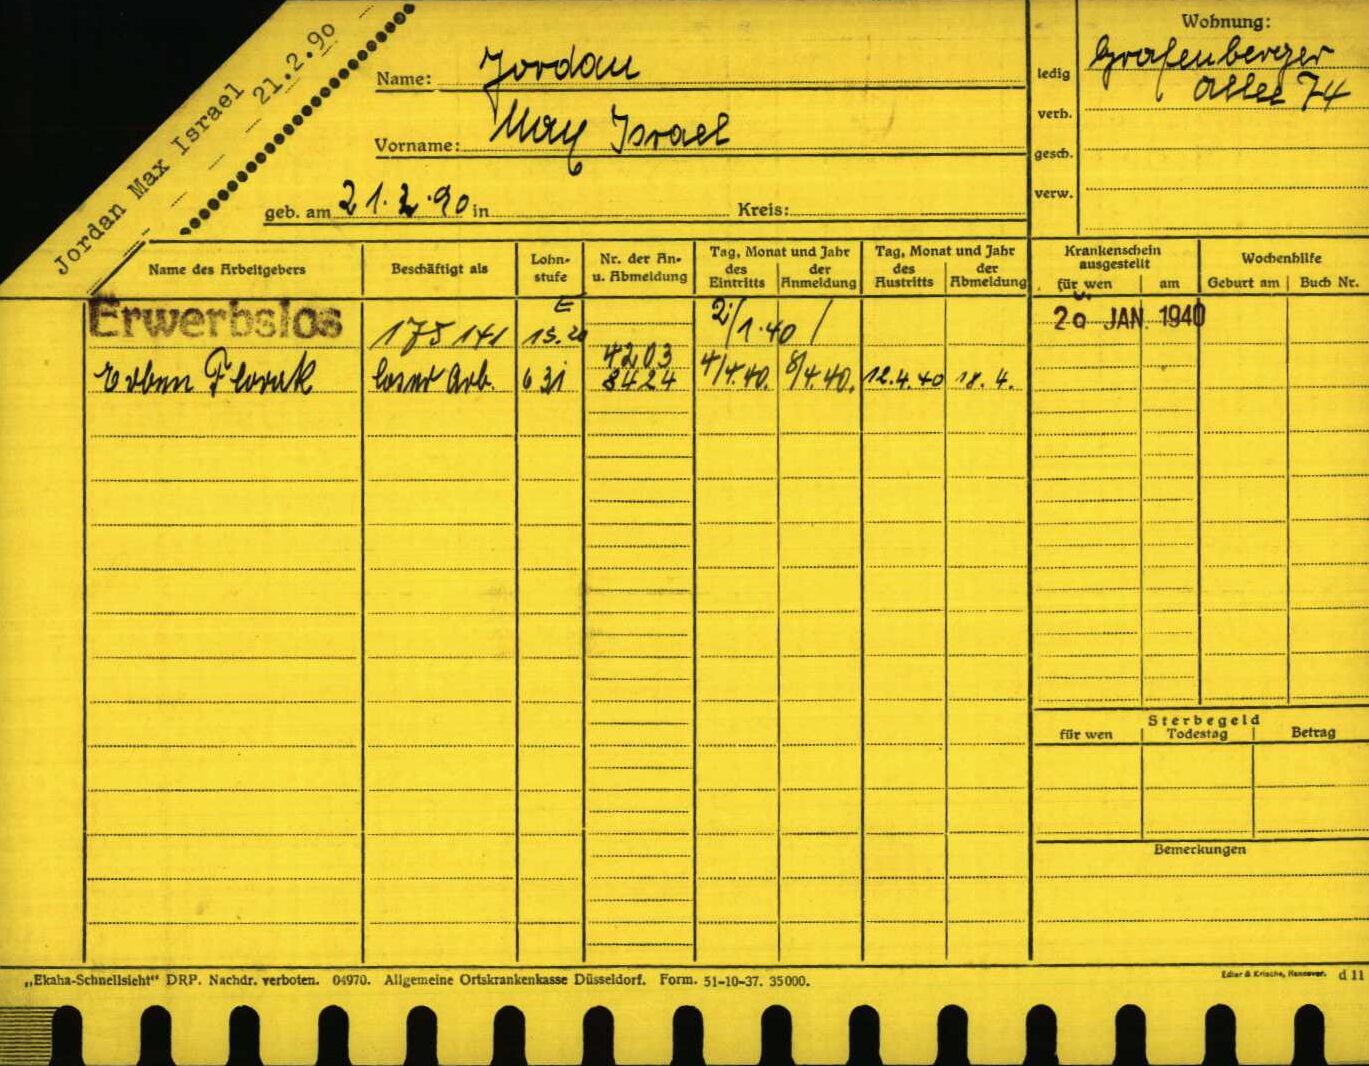 Jordan Max Israel 21.2.90
Name: Jordan
Vorname: Max Israel
geb. am 21.2.90 in Kreis:
ledig
verb.
gesch.
verw.
Wohnung:
Grafenberger
Allee 74
Name des Arbeitgebers Beschäftigt als Lohn-stufe Nr. der An- u. Abmeldung Tag, Monat und Jahr des Eintritts der Anmeldung Tag, Monat und Jahr des Austritts der Abmeldung Krankenschein ausgestellt für wen am Wochenhilfe Geburt am Buch Nr.
Erwerbslos 175 141 E 15.20 2/1.40 / 20 JAN. 1940
4203
Erben Arb. 631 8424 4/4.40. 8/4.40. 12.4.40 18.4.
Sterbegeld
für wen Todestag Betrag
Bemerkungen
„Ekaha-Schnellsicht“ DRP. Nachdr. verboten. 04970. Allgemeine Ortskrankenkasse Düsseldorf. Form. 51-10-37. 35000.
Edler & Krische, Hannover. d 11